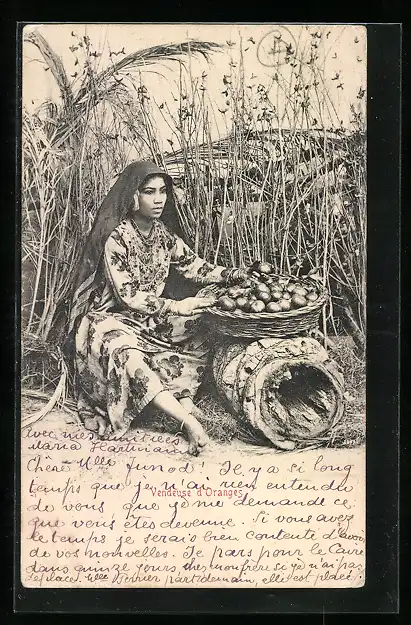 Vendeuse d'Oranges
Avec mes amitiées
Maria
Chère Melle Junod! Il y a si long
temps que je n'ai rien entendu
de vous, que je me demande ce
que vous êtes devenue. Si vous avez
le temps je serais bien contente d'avoir
de vos nouvelles. Je pars pour le Caire
dans quinze jours, chez mon frère si je n'ai pas
de place. Melle part demain, elle est placé